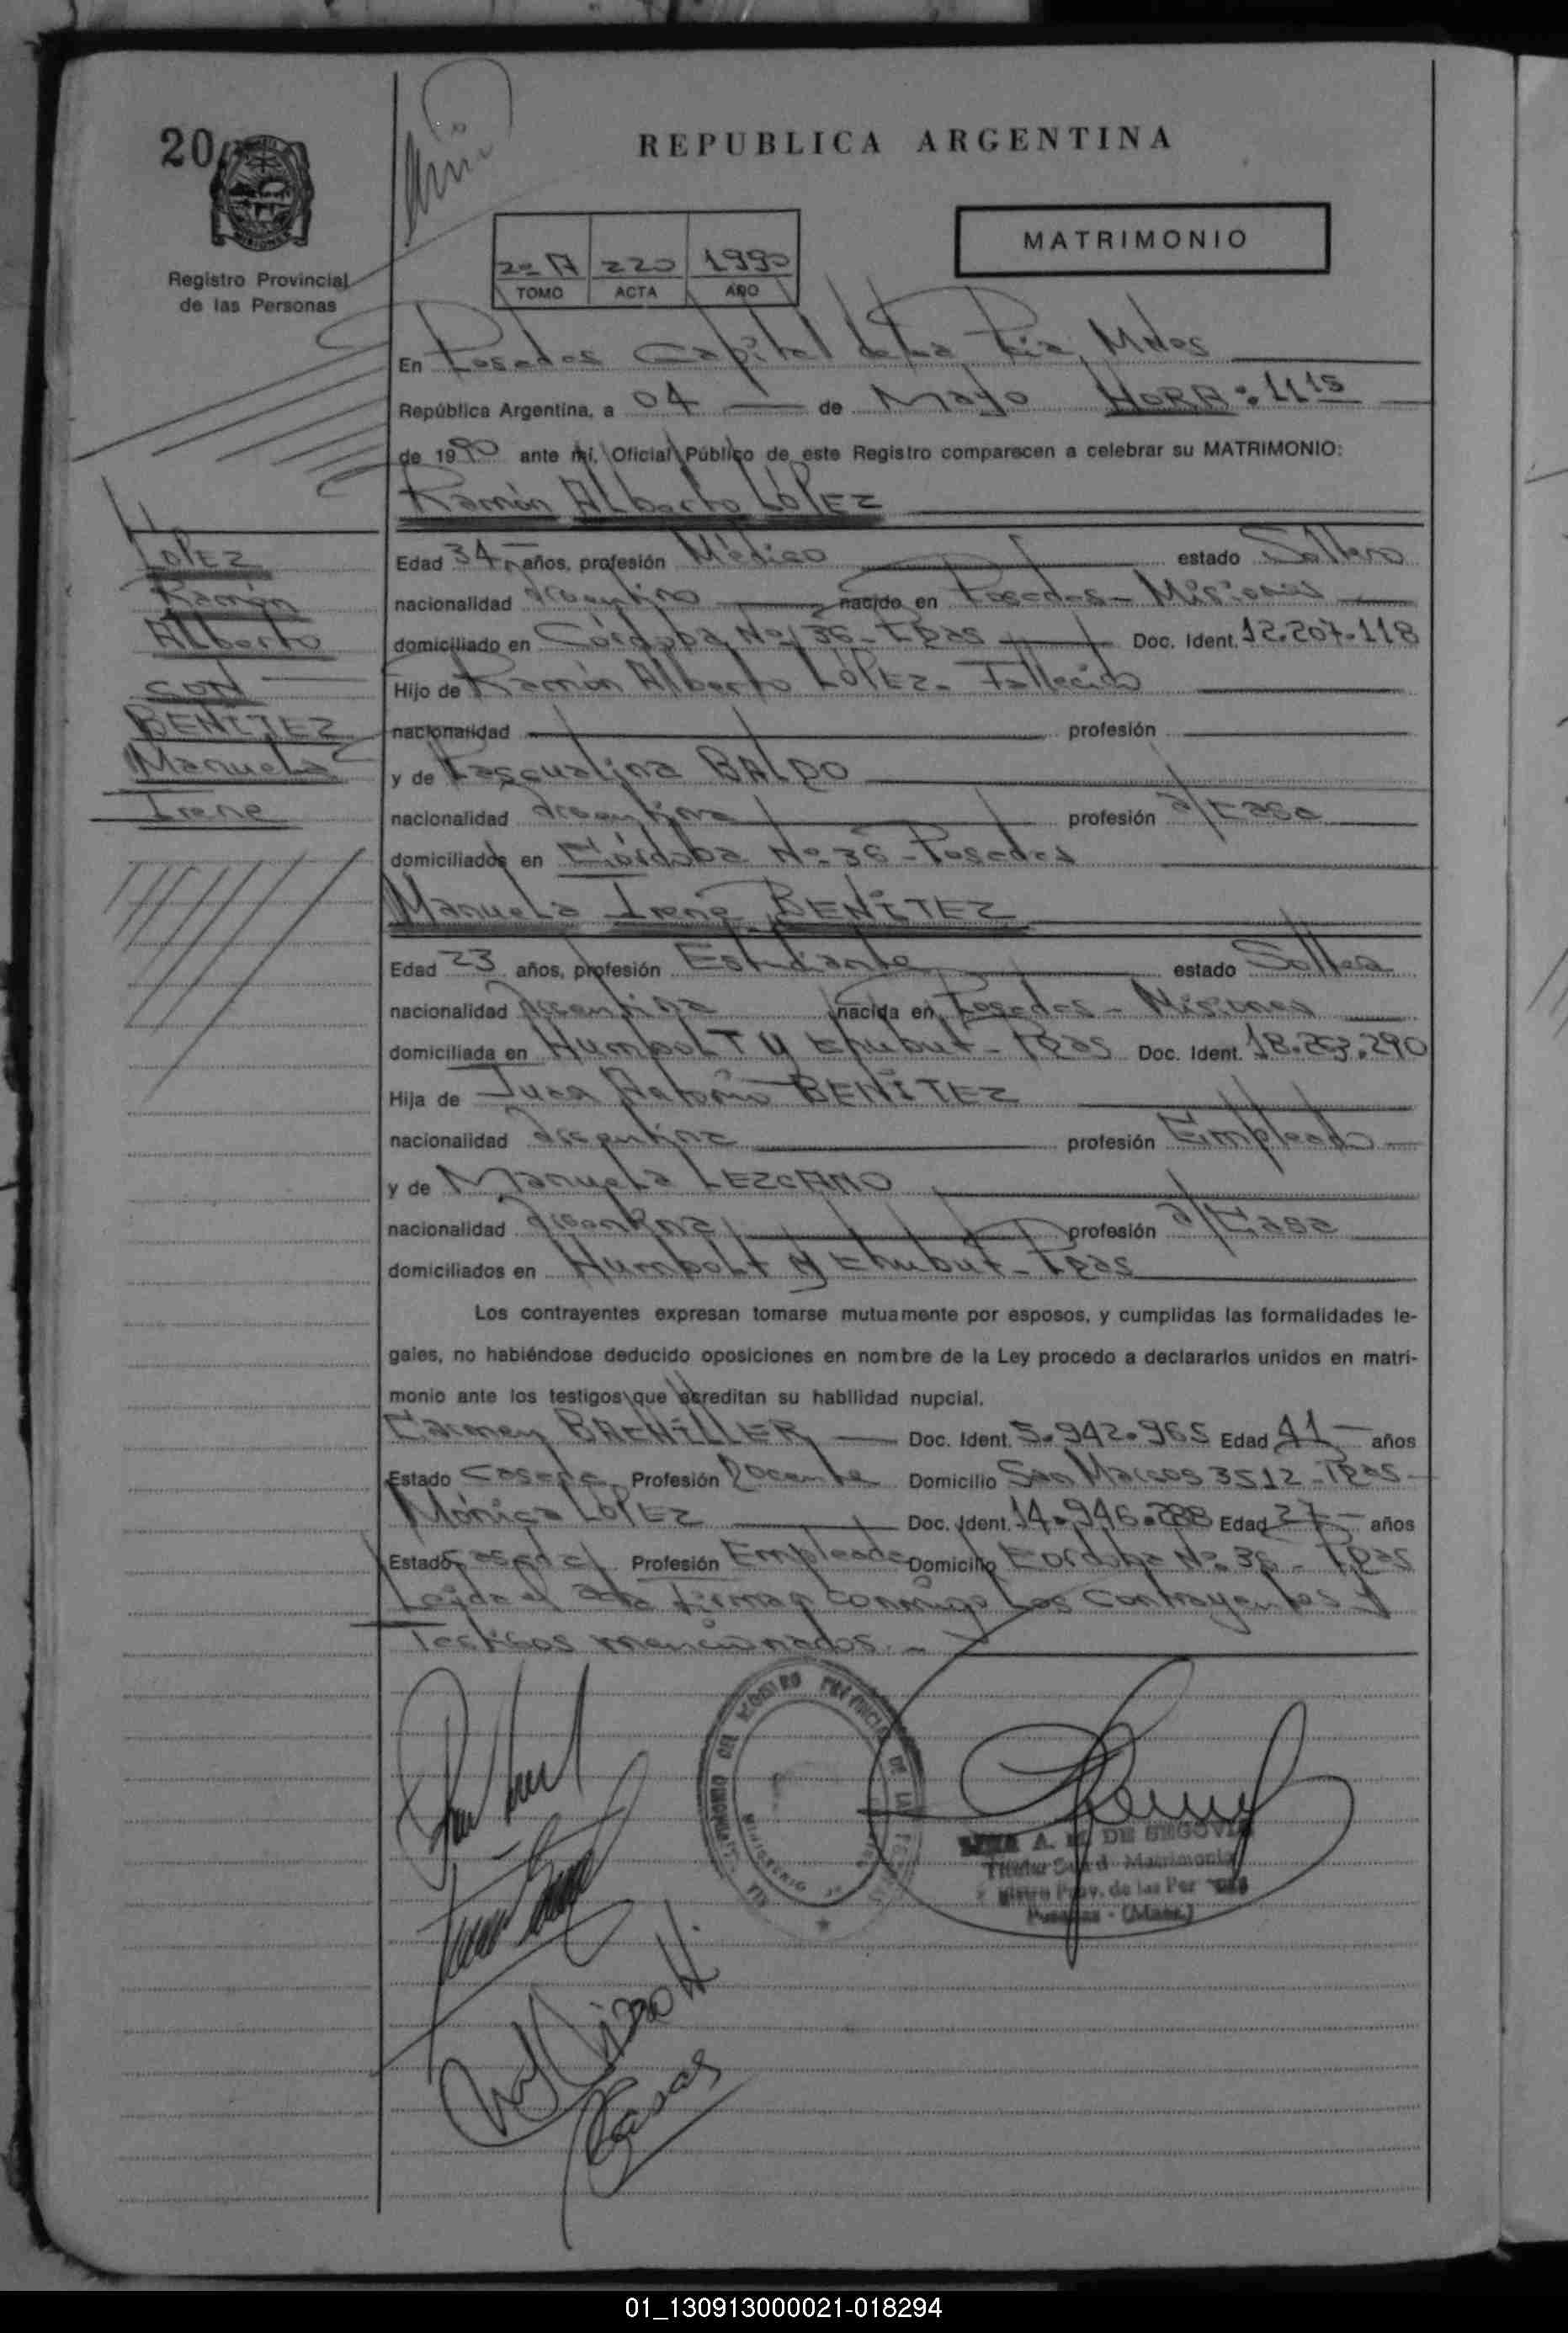 20
REPUBLICA ARGENTINA
MATRIMONIO
Registro Provincial
de las Personas
2º A 220 1990
TOMO ACTA AÑO
En Posadas Capital de La Pcia. Mnes
República Argentina, a 04 de Mayo HORA: 11 15
de 1990 ante mí, Oficial Público de este Registro comparecen a celebrar su MATRIMONIO:
Ramón Alberto LÓPEZ
LÓPEZ
Ramón
Alberto
CON
BENÍTEZ
Manuela
Irene
Edad 34 años, profesión Médico estado Soltero
nacionalidad Argentino nacido en Posadas - Misiones
domiciliado en Córdoba Nº 36 - Pdas Doc. Ident. 12.207.118
Hijo de Ramón Alberto LÓPEZ - Fallecido
nacionalidad profesión
y de Pascualina BALDO
nacionalidad Argentina profesión a/Casa
domiciliados en Córdoba Nº 36 - Posadas
Manuela Irene BENÍTEZ
Edad 23 años, profesión Estudiante estado Soltera
nacionalidad Argentina nacida en Posadas - Misiones
domiciliada en Humbolt y Chubut - Pdas Doc. Ident. 18.263.290
Hija de Juan Antonio BENÍTEZ
nacionalidad Argentina profesión Empleado
y de Manuela LEZCANO
nacionalidad Argentina profesión a/Casa
domiciliados en Humbolt y Chubut - Pdas
Los contrayentes expresan tomarse mutuamente por esposos, y cumplidas las formalidades le-
gales, no habiéndose deducido oposiciones en nombre de la Ley procedo a declararlos unidos en matri-
monio ante los testigos que acreditan su habilidad nupcial.
Carmen BACHILLER Doc. Ident. 5.942.965 Edad 41 años
Estado Casada Profesión Docente Domicilio San Marcos 3512 - Pdas
Mónica LÓPEZ Doc. Ident. 14.946.288 Edad 27 años
Estado Casada Profesión Empleada Domicilio Córdoba Nº 36 - Pdas
Leída el acta firman conmigo Los Contrayentes y
Testigos mencionados. -
REGISTRO PROVINCIAL DE LAS
MINISTERIO
A. M. DE SEGOVIA
Titular Matrimonio
Prov. de las Per
Posadas - (Mnes.)
01_130913000021-018294